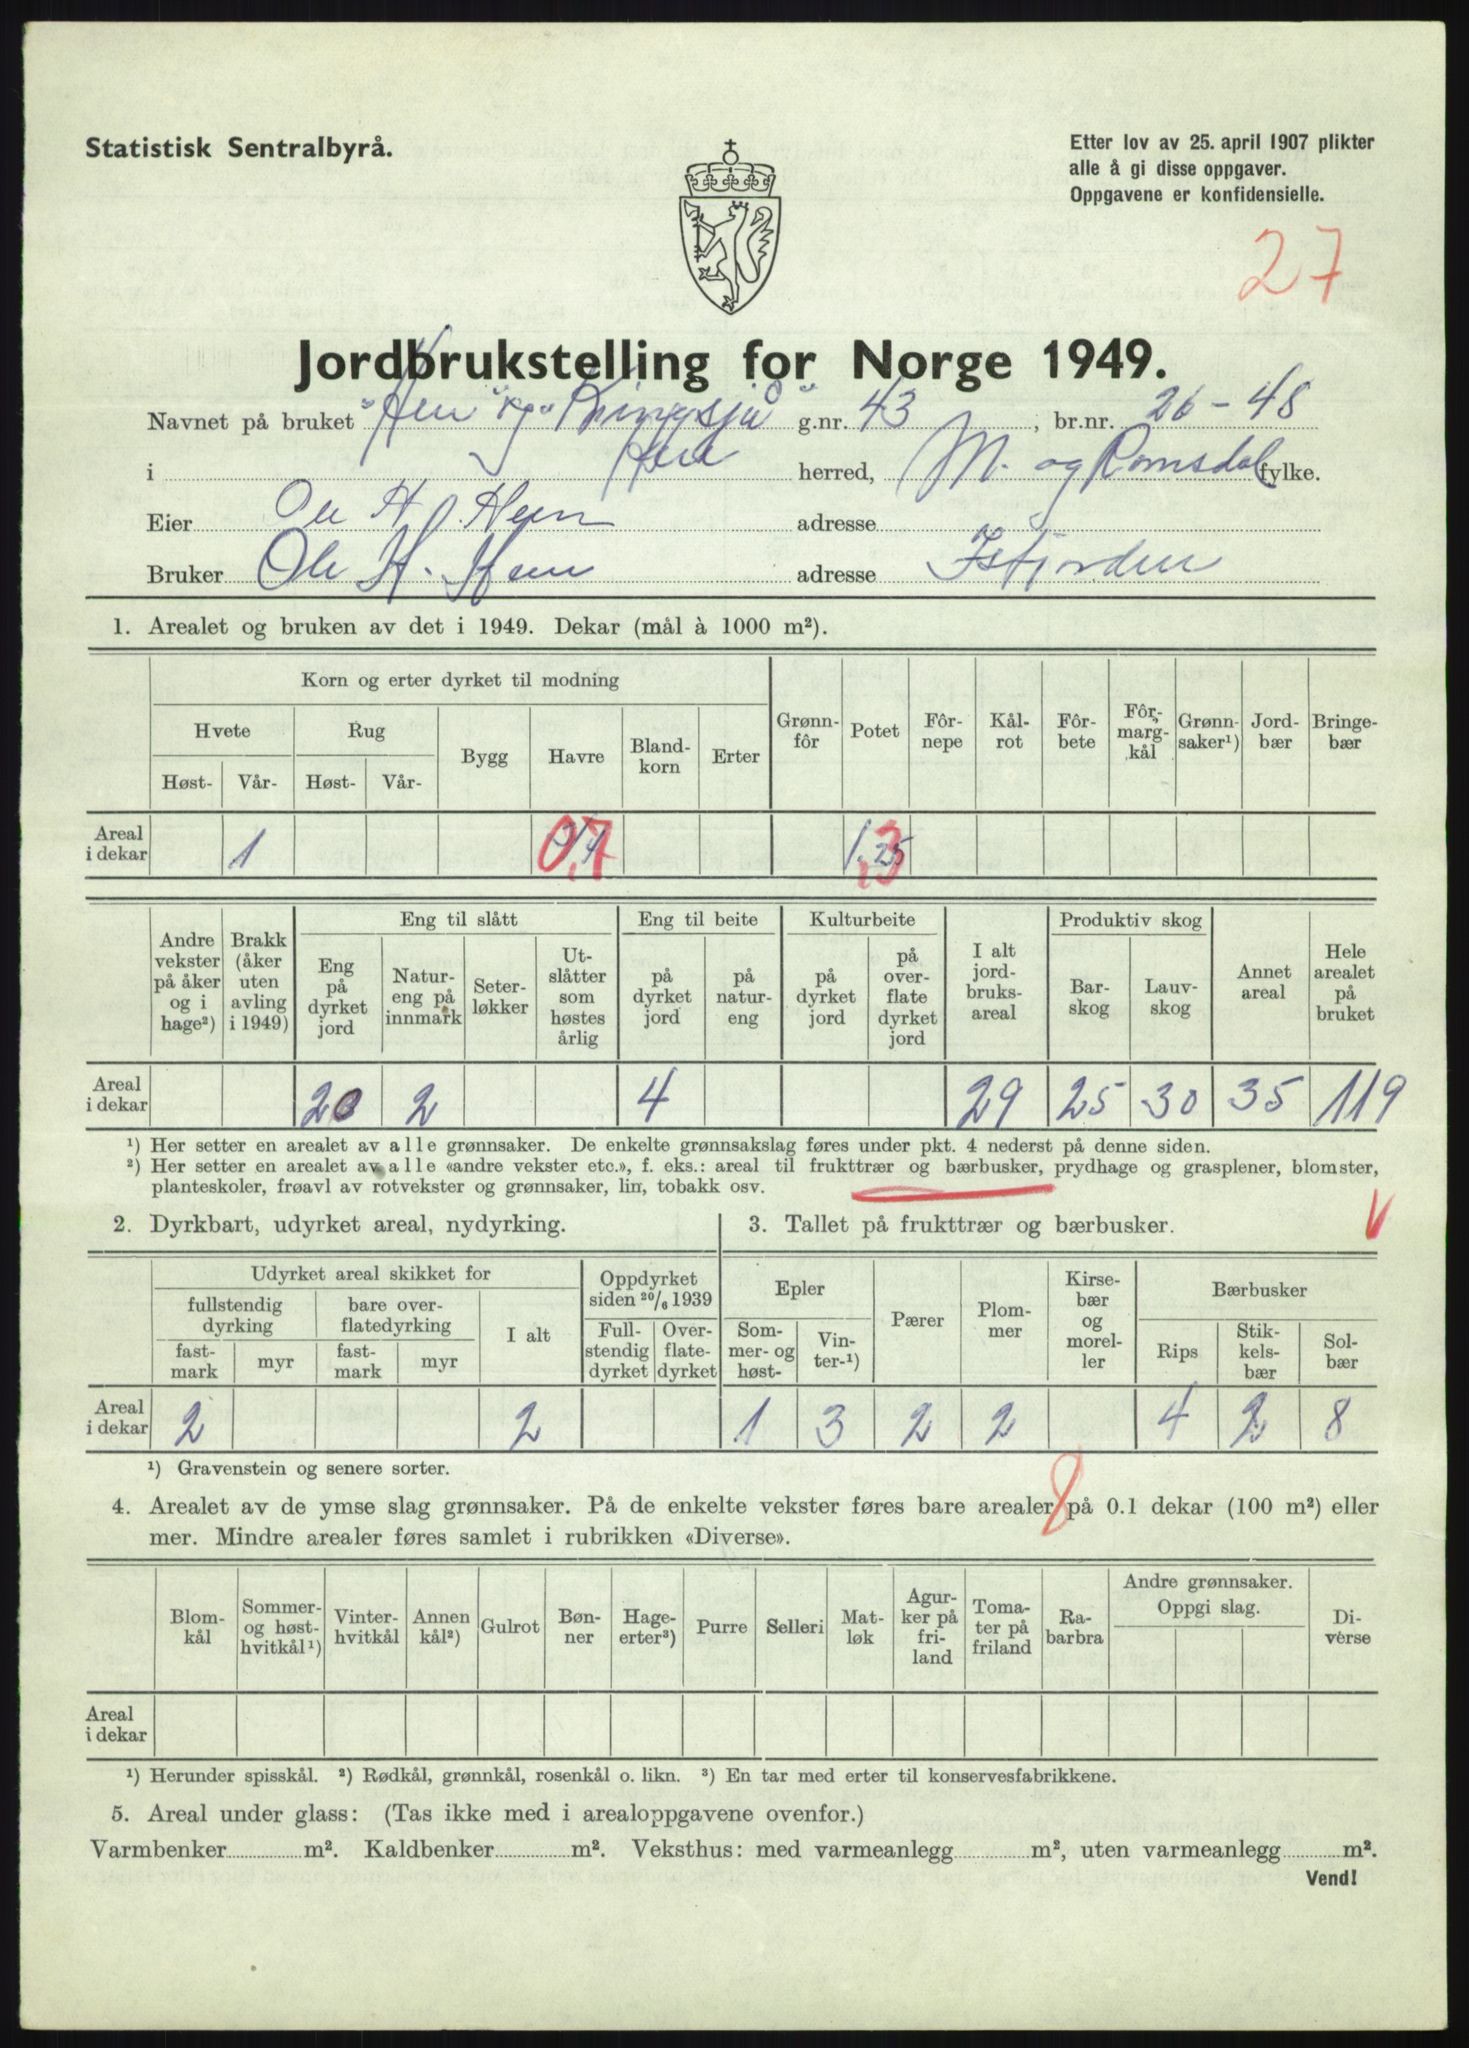 Statistisk Sentralbyrå.
Etter lov av 25. april 1907 plikter
alle å gi disse oppgaver.
Oppgavene er konfidensielle.
27
Jordbrukstelling for Norge 1949.
Navnet på bruket "Hen" og g.nr. 43, br.nr. 26-48
i Hen herred, M. og Romsdal fylke.
Eier Ole H. Hen adresse
Bruker Ole H. Hen adresse Isfjorden
1. Arealet og bruken av det i 1949. Dekar (mål à 1000 m²).
Korn og erter dyrket til modning
Hvete Rug Bygg Havre Bland-korn Erter Grønn-fôr Potet Fôr-nepe Kål-rot Fôr-bete Fôr-marg-kål Grønn-saker¹) Jord-bær Bringe-bær
Høst- Vår- Høst- Vår-
Areal i dekar 1 3/4 0,7 1.25 ,3
Andre vekster på åker og i hage²) Brakk (åker uten avling i 1949) Eng til slått Eng til beite Kulturbeite I alt jord-bruks-areal Produktiv skog Annet areal Hele arealet på bruket
Eng på dyrket jord Natur-eng på innmark Seter-løkker Ut-slåtter som høstes årlig på dyrket jord på natur-eng på dyrket jord på over-flate dyrket jord Bar-skog Lauv-skog
Areal i dekar 20 2 4 29 25 30 35 119
¹) Her setter en arealet av alle grønnsaker. De enkelte grønnsakslag føres under pkt. 4 nederst på denne siden.
²) Her setter en arealet av alle «andre vekster etc.», f. eks.: areal til frukttrær og bærbusker, prydhage og grasplener, blomster,
planteskoler, frøavl av rotvekster og grønnsaker, lin, tobakk osv.
2. Dyrkbart, udyrket areal, nydyrking.
3. Tallet på frukttrær og bærbusker.
Udyrket areal skikket for Oppdyrket siden 20/6 1939 Epler Pærer Plom-mer Kirse-bær og morel-ler Bærbusker
fullstendig dyrking bare over-flatedyrking I alt Full-stendig dyrket Over-flate-dyrket Som-mer- og høst- Vin-ter-¹) Rips Stik-kels-bær Sol-bær
fast-mark myr fast-mark myr
Areal i dekar 2 2 1 3 2 2 4 2 8
¹) Gravenstein og senere sorter.
8
4. Arealet av de ymse slag grønnsaker. På de enkelte vekster føres bare arealer på 0.1 dekar (100 m²) eller
mer. Mindre arealer føres samlet i rubrikken «Diverse».
Blom-kål Sommer- og høst-hvitkål¹) Vinter-hvitkål Annen kål²) Gulrot Bøn-ner Hage-erter³) Purre Selleri Mat-løk Agur-ker på fri-land Toma-ter på friland Ra-barbra Andre grønnsaker. Oppgi slag. Di-verse
Areal i dekar
¹) Herunder spisskål. ²) Rødkål, grønnkål, rosenkål o. likn. ³) En tar med erter til konservesfabrikkene.
5. Areal under glass: (Tas ikke med i arealoppgavene ovenfor.)
Varmbenker m². Kaldbenker m². Veksthus: med varmeanlegg m², uten varmeanlegg m².
Vend!